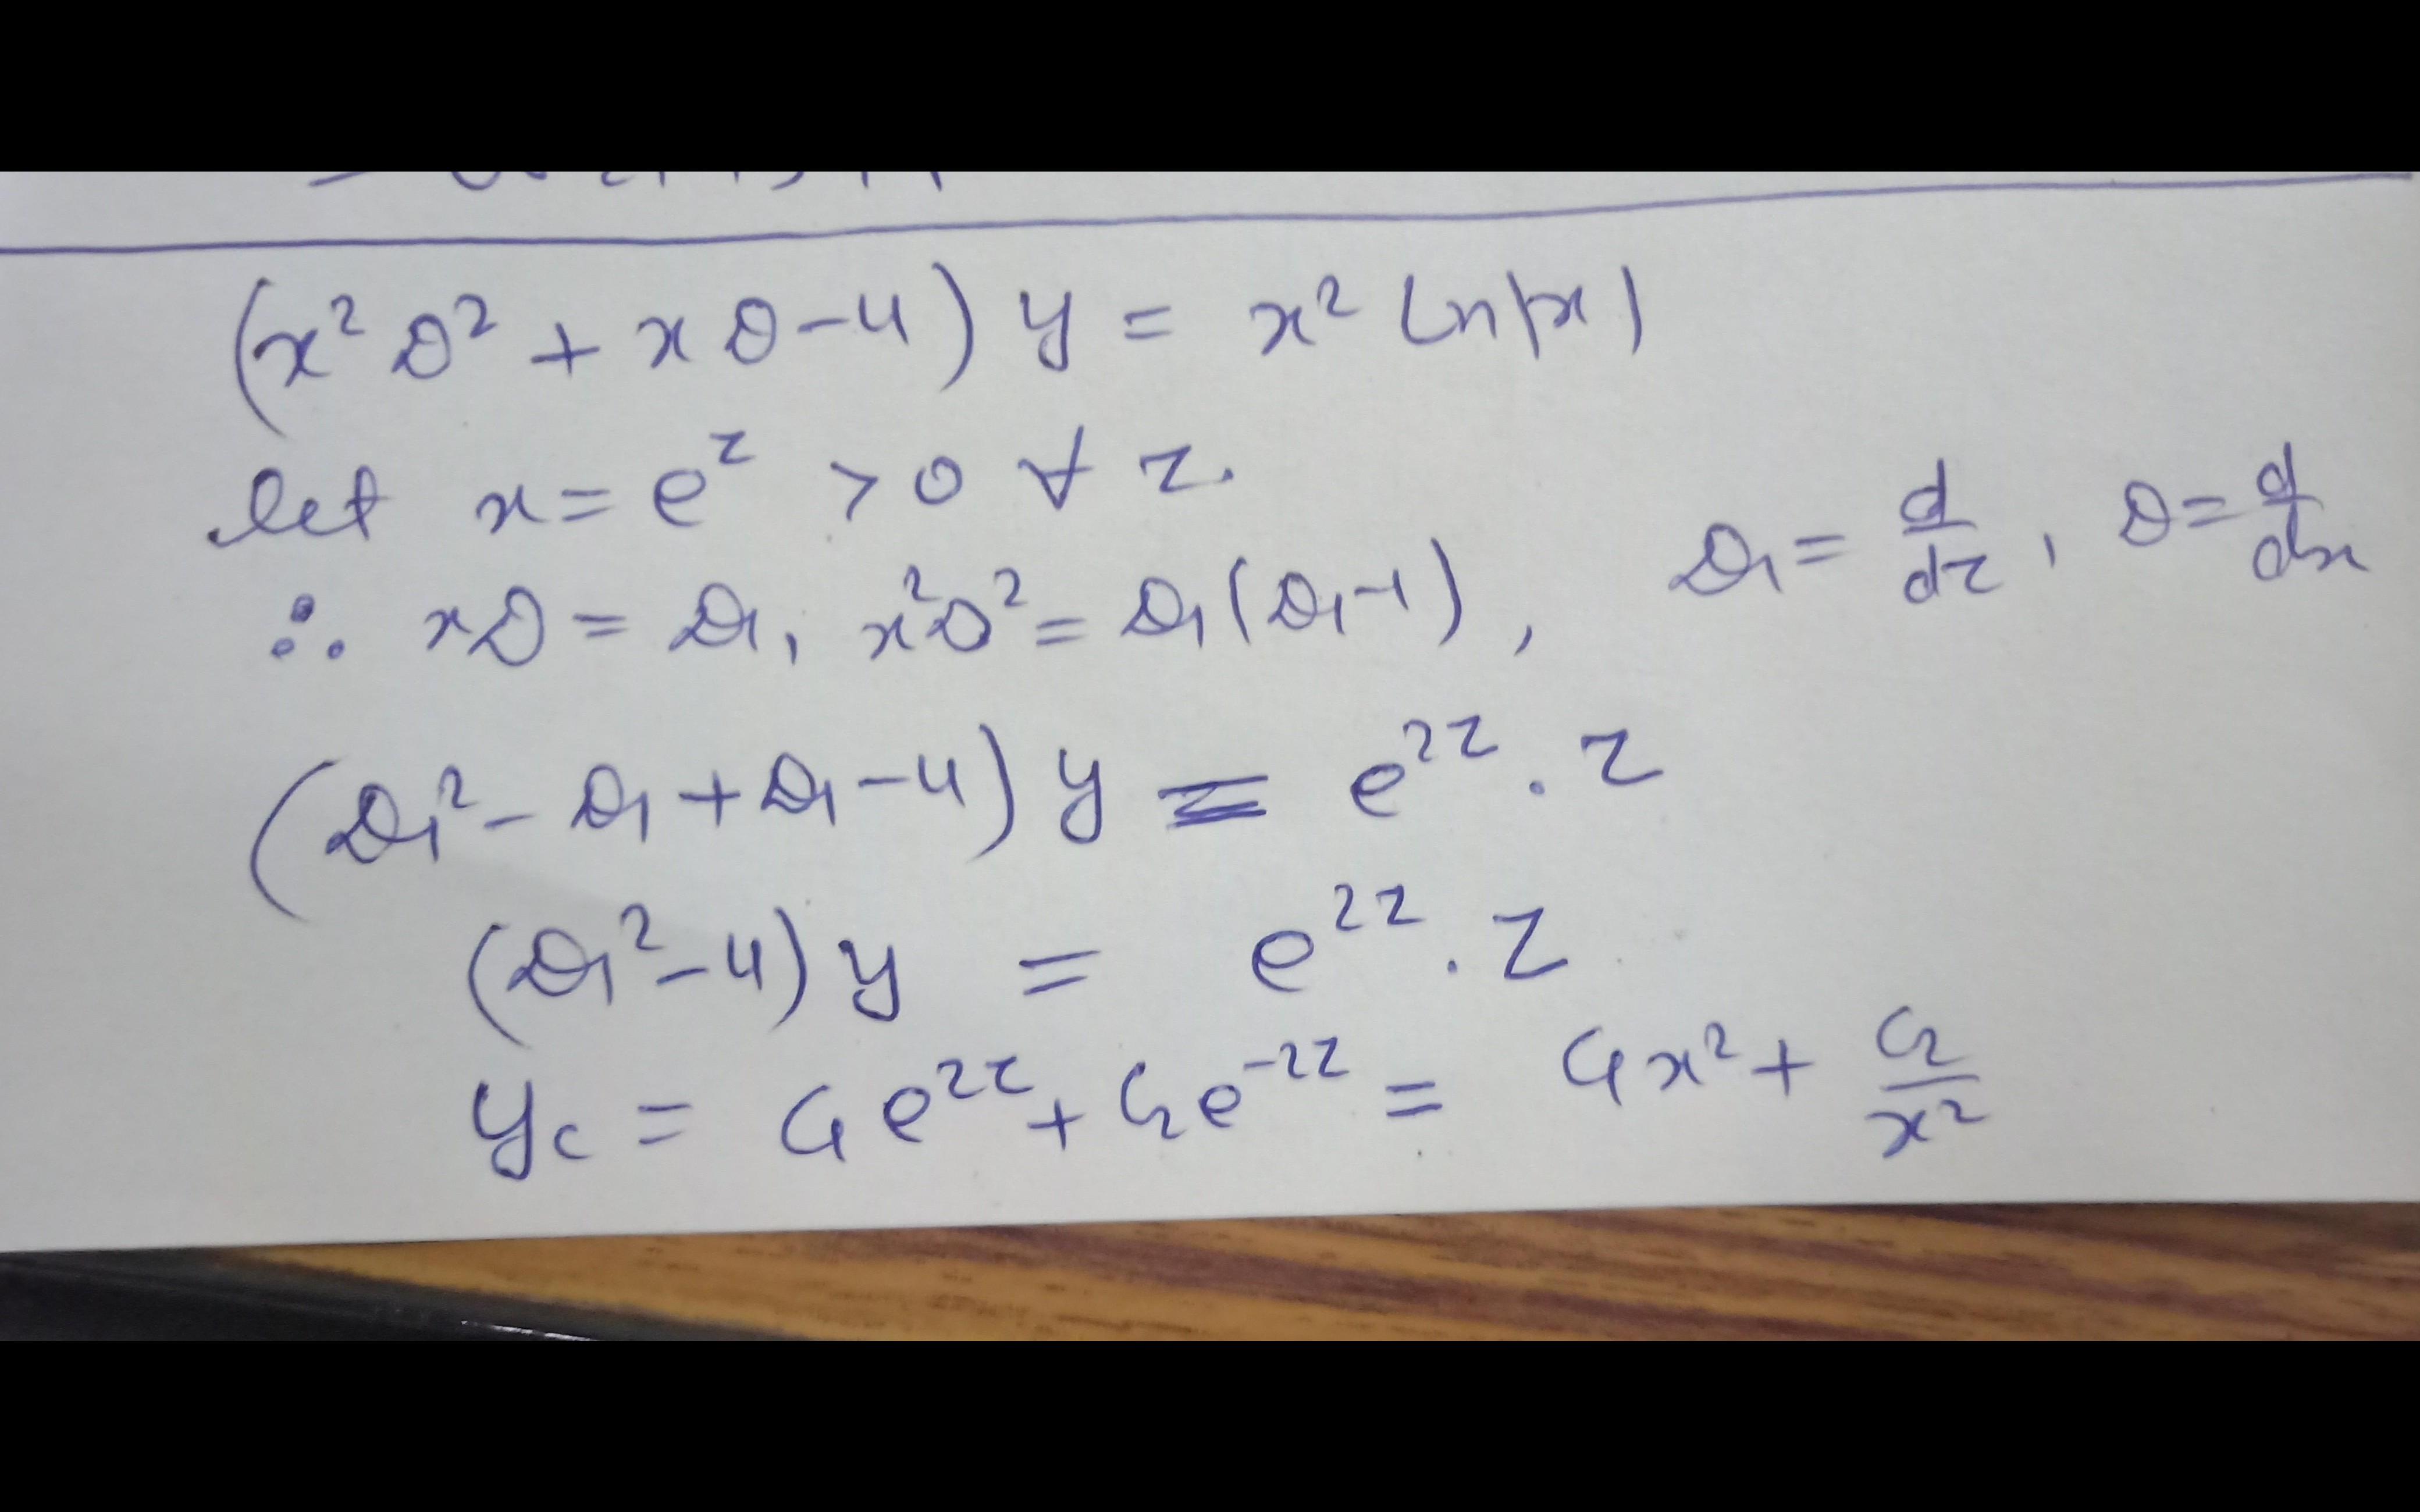 (x² D² + x D - 4) y = x² ln|x|
let x = e^z > 0 ∀ z.
∴ xD = D₁, x²D² = D₁(D₁-1), D₁ = d/dz, D = d/dx
(D₁² - D₁ + D₁ - 4) y = e^{2z} . z
(D₁² - 4) y = e^{2z} . z
y_c = C₁e^{2z} + C₂e^{-2z} = C₁x² + C₂/x²